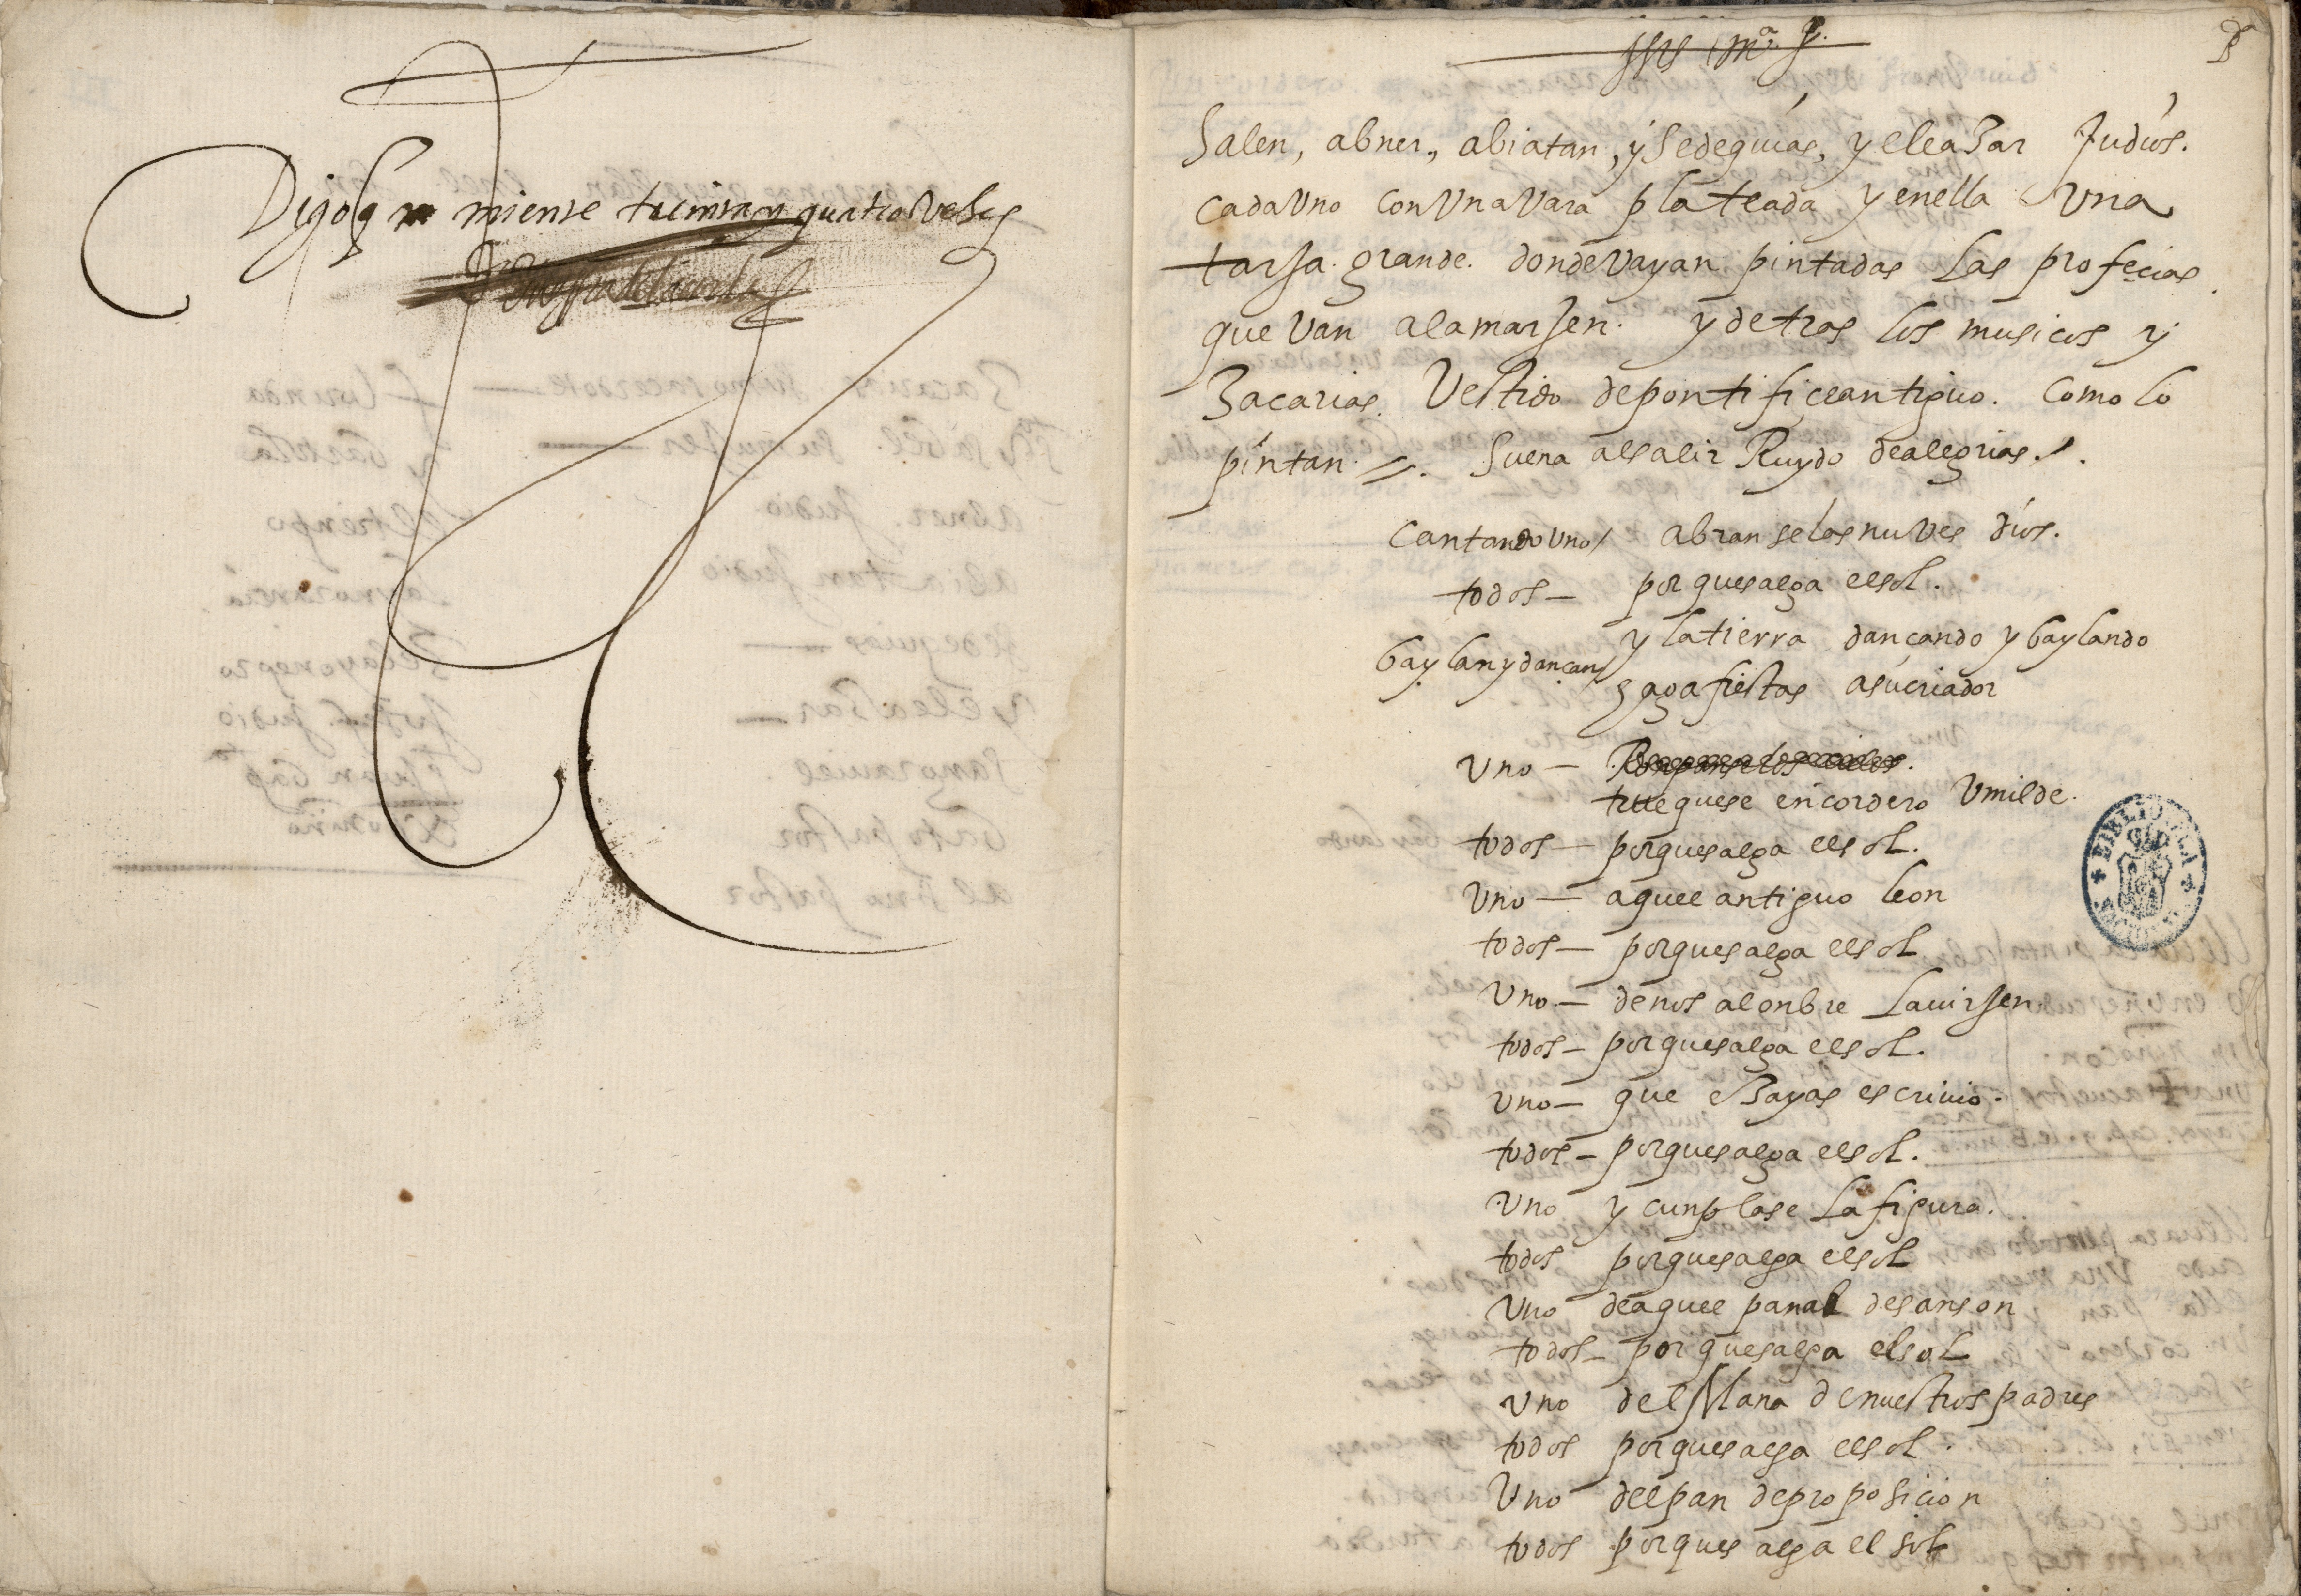 Digo q miente treinta y quatro veses
Jhs mª J.
Salen, abner, abiatan, y Sedequias, y eleaZar Judíos.
cada Uno con Una Vara plateada y en ella Una
tarja grande. donde Vayan pintadas Las profecias
que Van a lamarjen. y detras los musicos y
Zacarias. Vestido de pontifice antiguo. como lo
pintan. Suena al salir Ruydo de alegrias.
cantando uno / abran se las nuves dios.
todos — por que salga el sol.
y la tierra dançando y baylando
baylan y dançan /
haga fiestas a su criador
Uno — Ronpanse los cielos.
trueguese en cordero Umilde.
todos — por que salga el sol.
Uno — aquel antiguo leon
todos — por que salga el sol
Uno — denos al onbre La virjen
todos — por que salga el sol.
Uno — que eZayas escrivio.
todos — por que salga el sol.
Uno y cunplase La figura.
todos por que salga el sol
Uno de aquel panal de sanson
todos — por que salga el sol
Uno del Mana de nuestros padres
todos por que salga el sol.
Uno del pan de proposicion
todos por que salga el sol
BIBLIOTECA